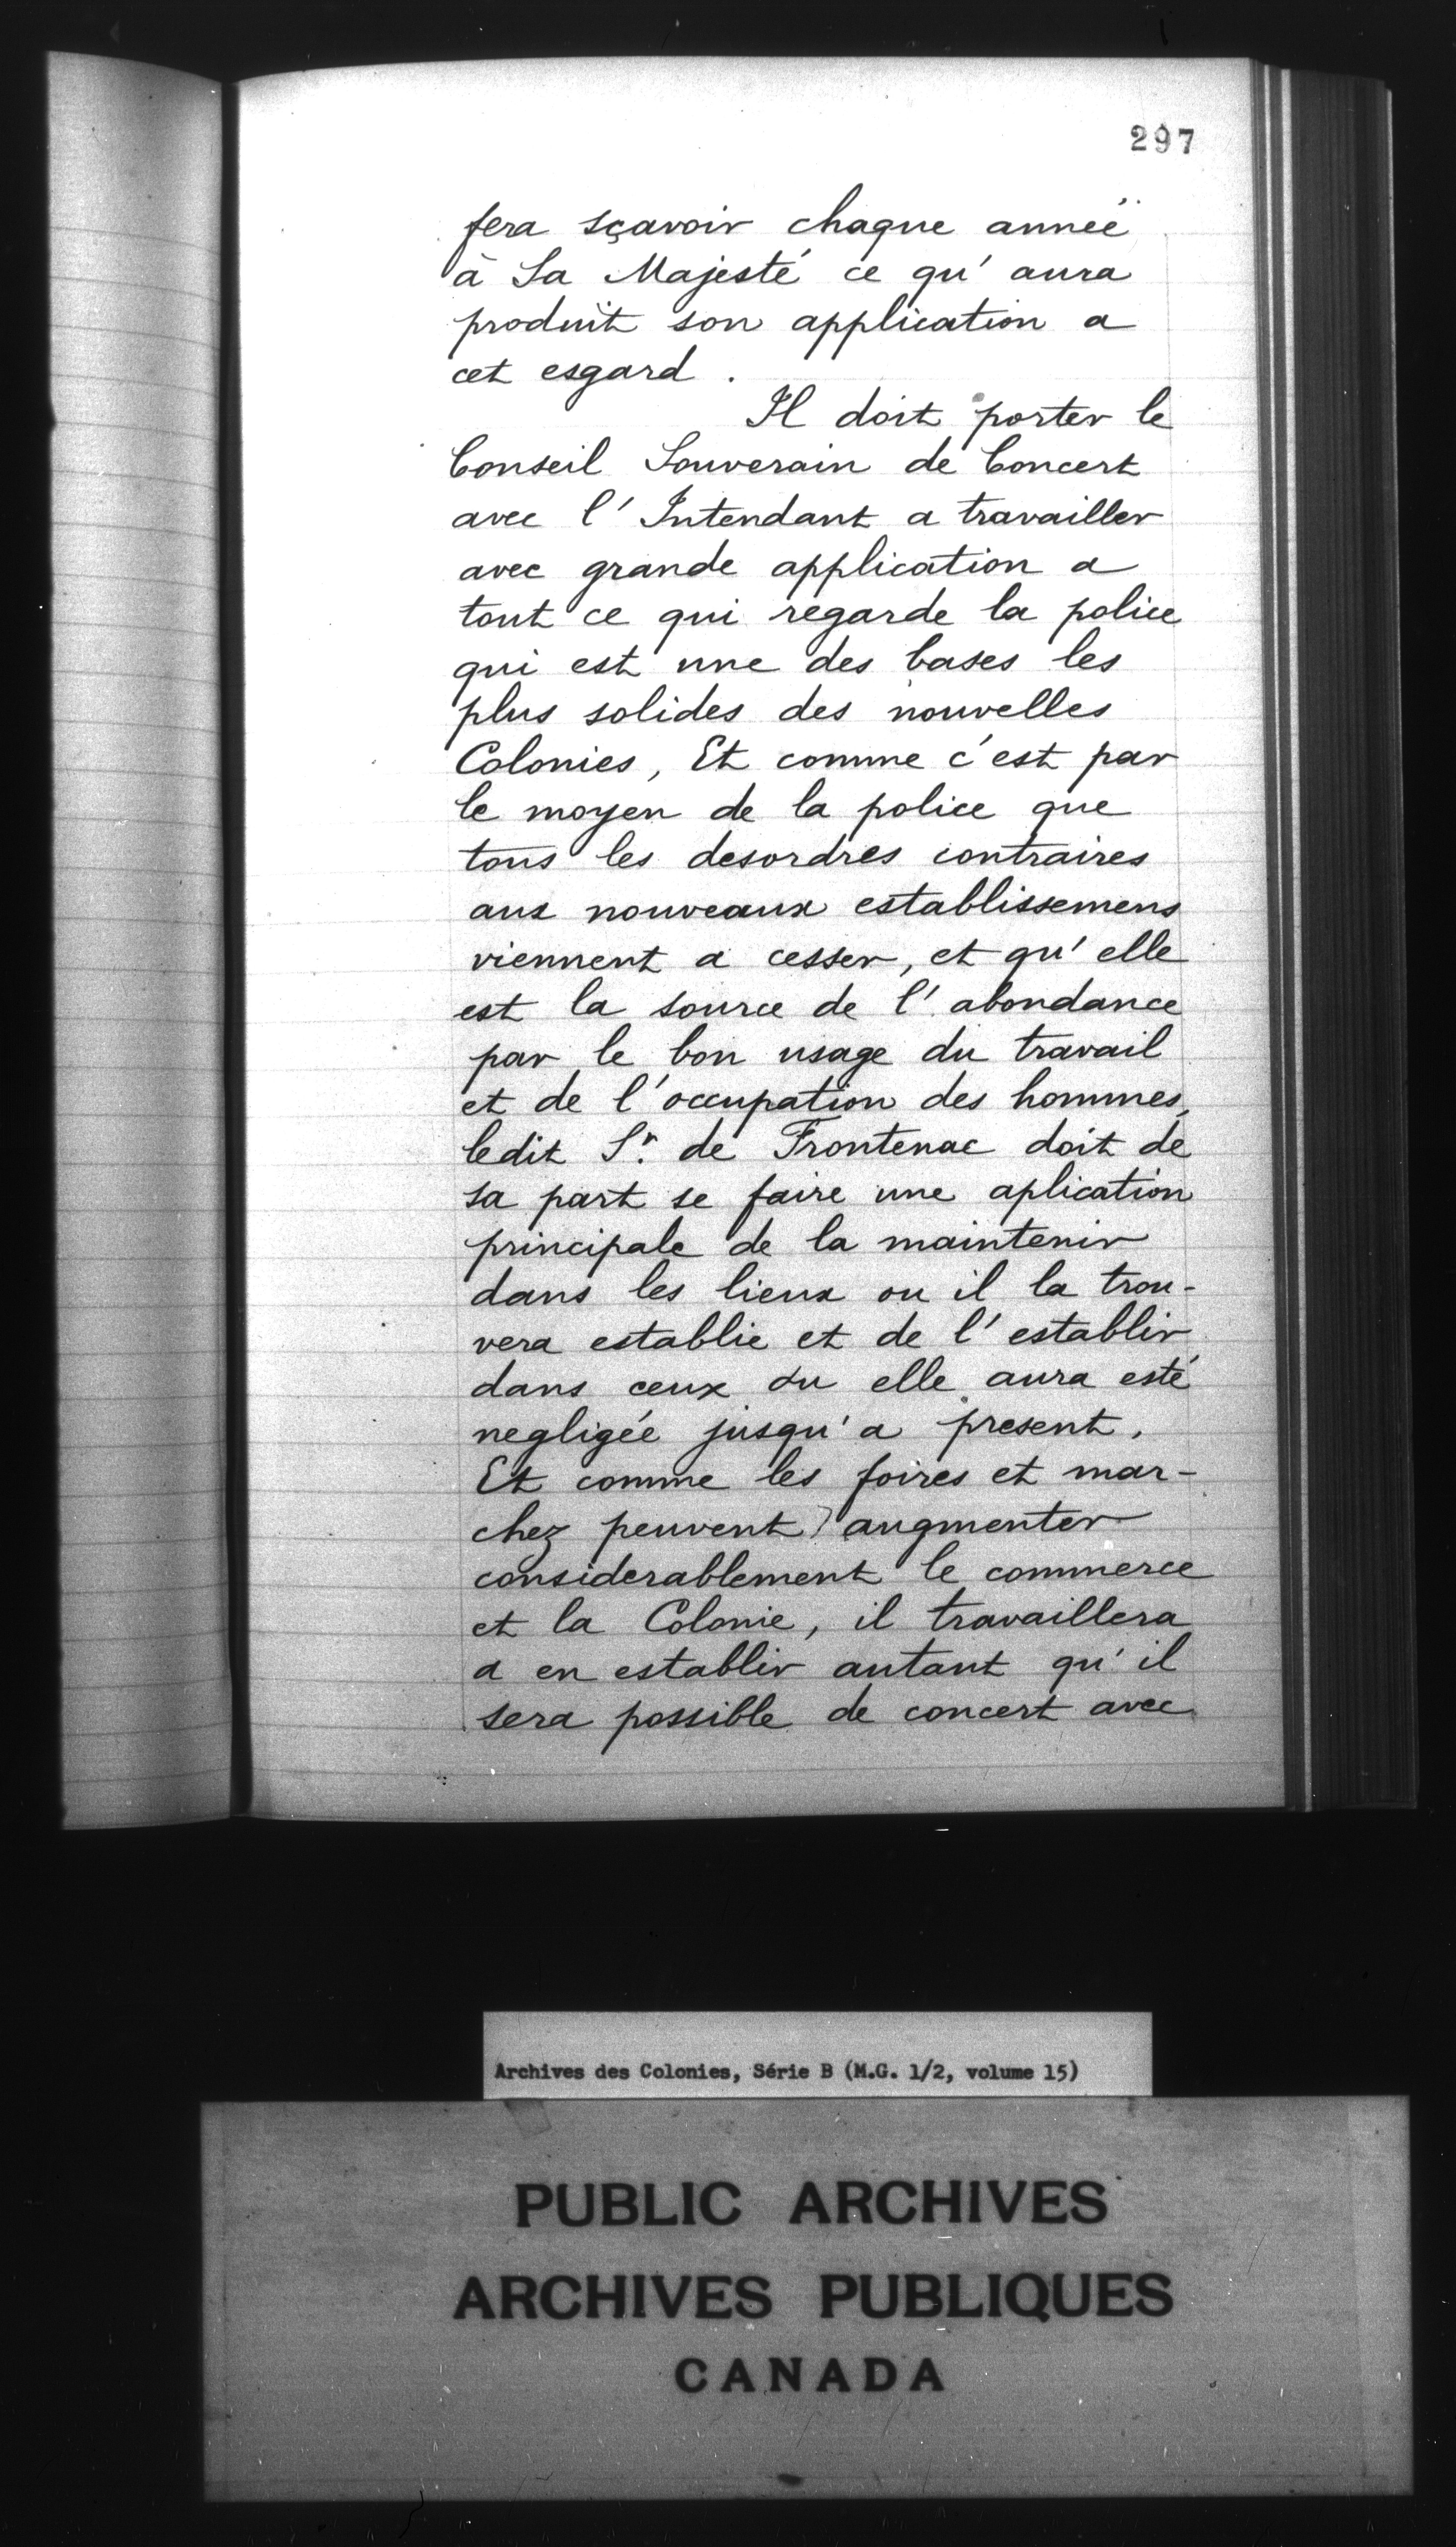 297
fera sçavoir chaque année
à Sa Majesté ce qu'aura
produit son application a
cet esgard.
Il doit porter le
Conseil Souverain de Concert
avec l'Intendant a travailler
avec grande application a
tout ce qui regarde la police
qui est une des bases les
plus solides des nouvelles
Colonies, Et comme c'est par
le moyen de la police que
tous les desordres contraires
aux nouveaux establissemens
viennent a cesser, et qu'elle
est la source de l'abondance
par le bon usage du travail
et de l'occupation des hommes,
ledit Sr. de Frontenac doit de
sa part se faire une aplication
principale de la maintenir
dans les lieux ou il la trou-
vera establie et de l'establir
dans ceux ou elle aura esté
negligée jusqu'a present.
Et comme les foires et mar-
chez peuvent augmenter
considerablement le commerce
et la Colonie, il travaillera
a en establir autant qu'il
sera possible de concert avec
Archives des Colonies, Série B (M.G. 1/2, volume 15)
PUBLIC ARCHIVES
ARCHIVES PUBLIQUES
CANADA